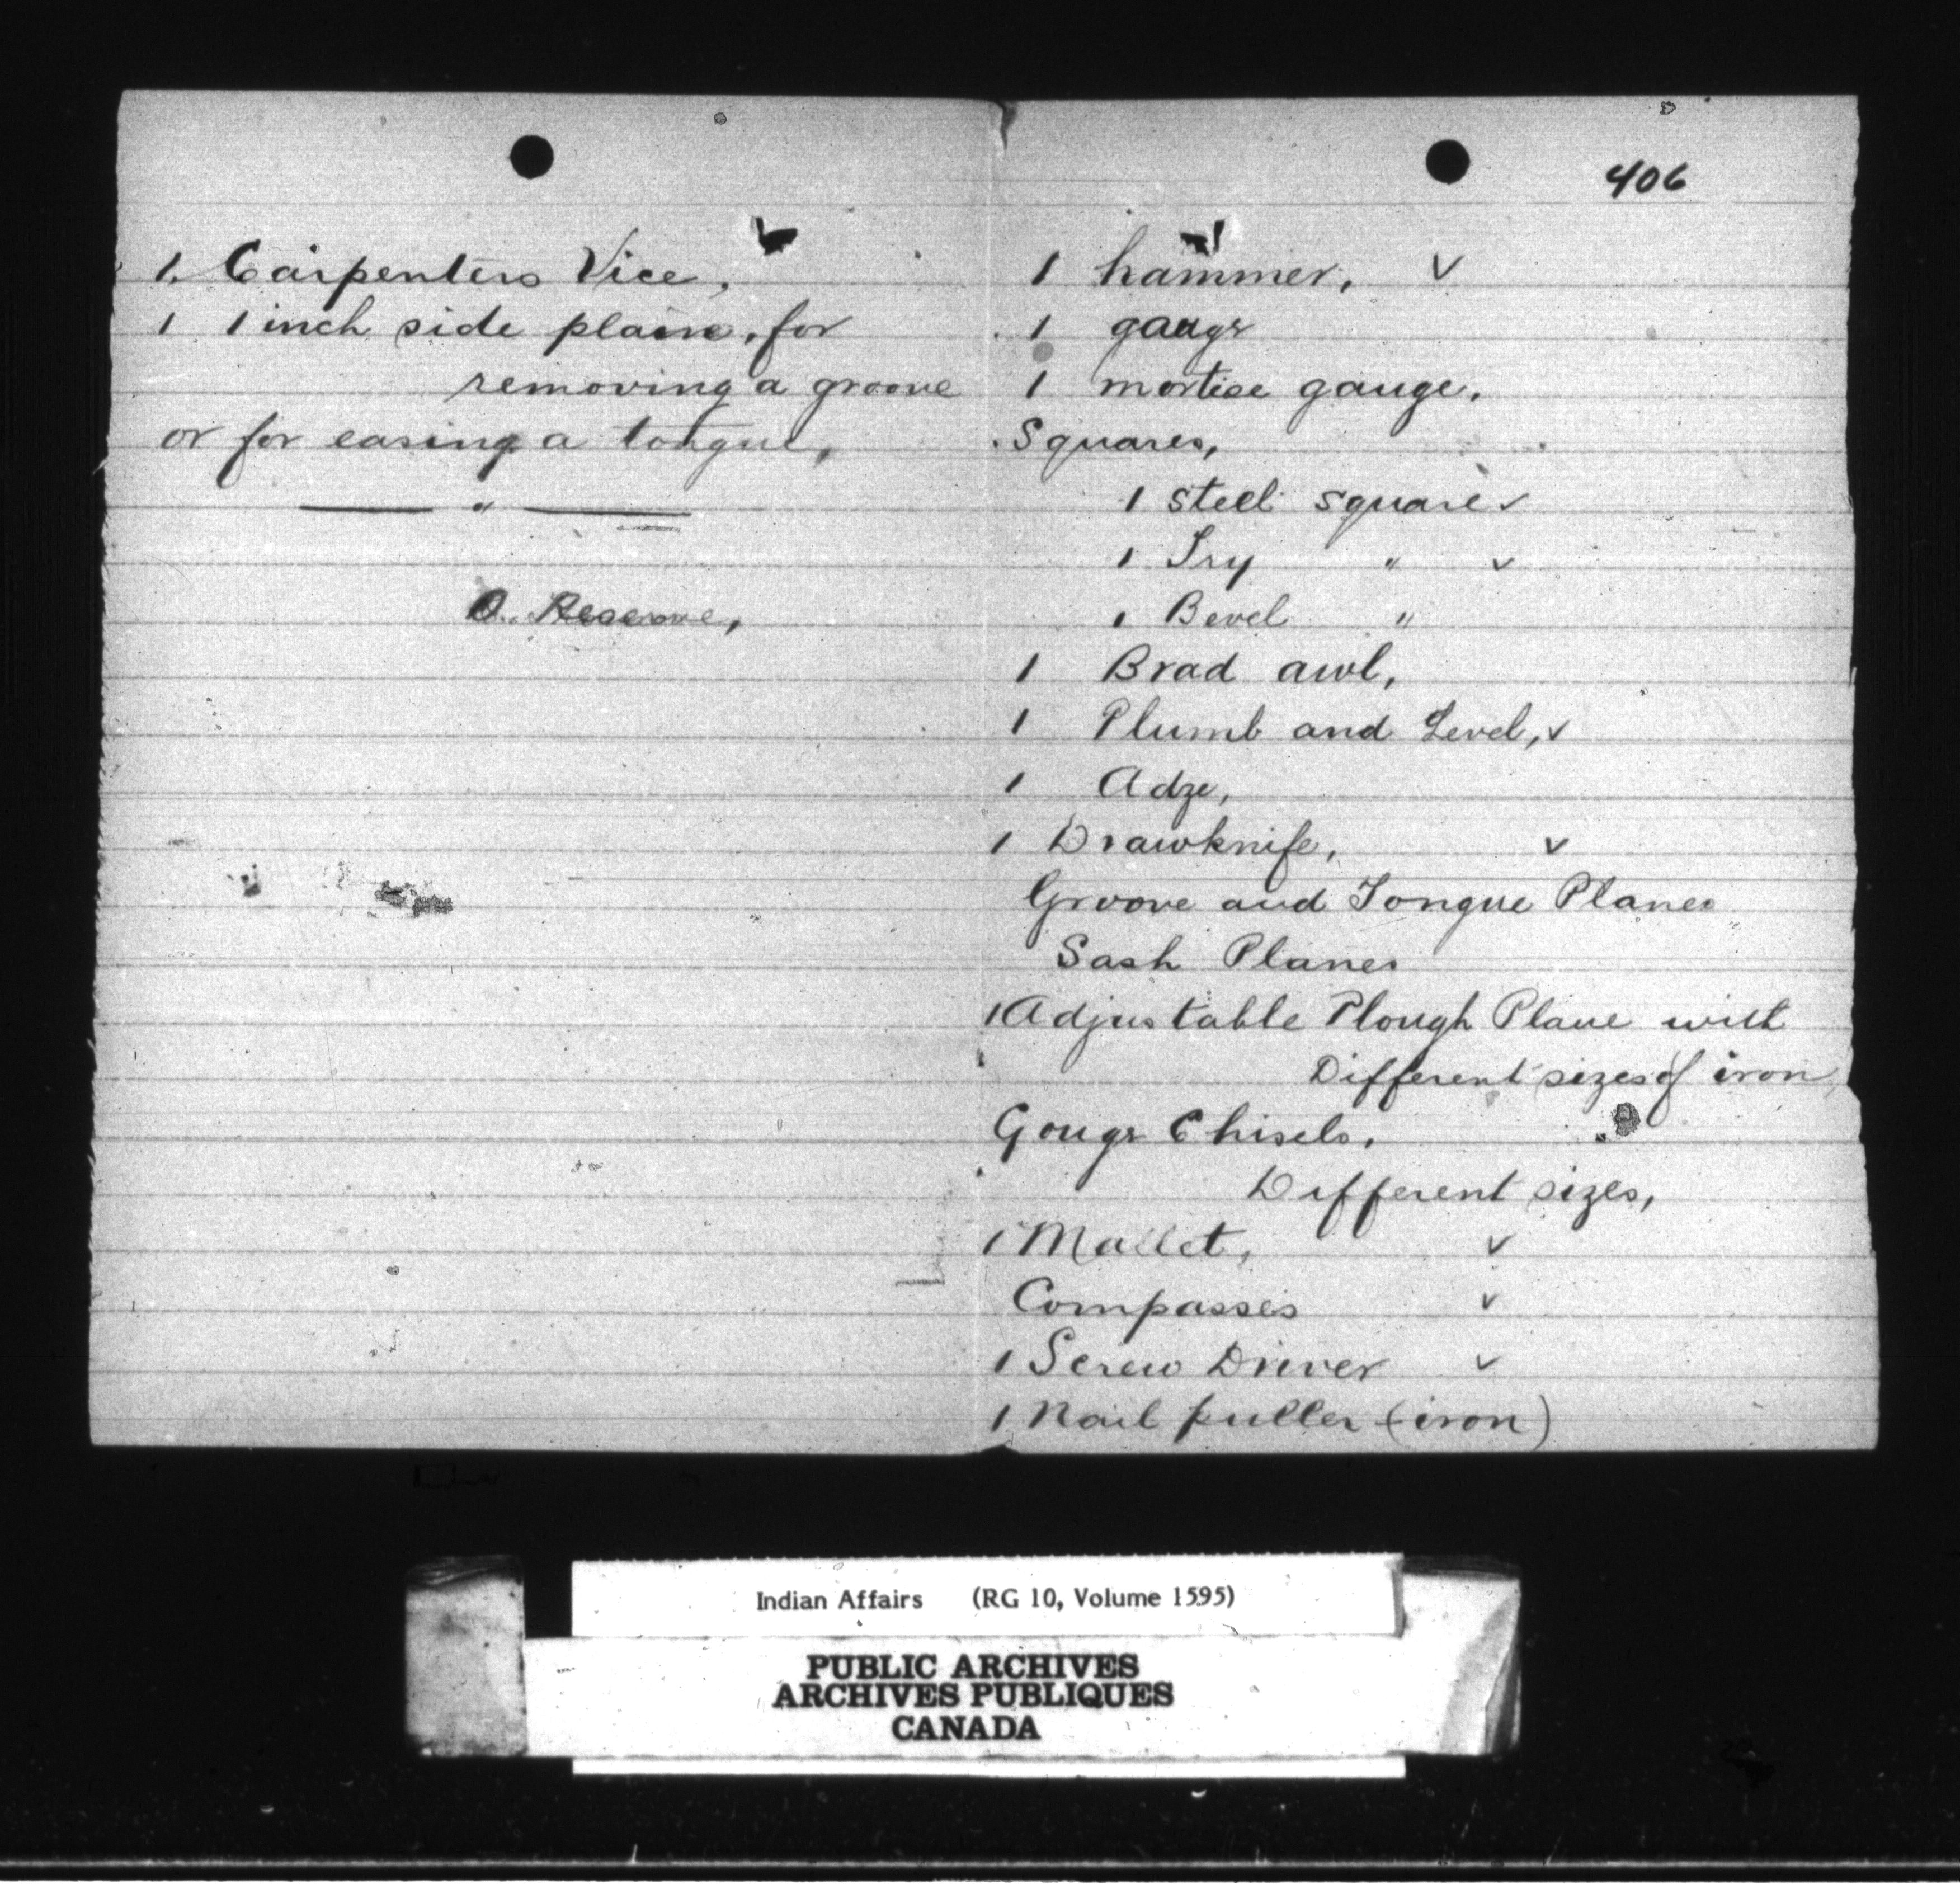 1. Carpenters Vice,
1 1 inch side plain, for
removing a groove
or for easing a tongue,
— " —
O. Reserve,
406
1 hammer, v
1 gauge
1 mortise gauge.
Squares,
1 steel square v
1 Try " v
1 Bevel "
1 Brad awl,
1 Plumb and Level, v
1 Adze,
1 Drawknife, v
Groove and Tongue Planes
Sash Planes
1 Adjustable Plough Plane with
Different sizes of iron,
Gouge Chisels,
Different sizes,
1 Mallet, v
Compasses v
1 Screw Driver v
1 Nail puller (iron)
Indian Affairs (RG 10, Volume 1595)
PUBLIC ARCHIVES
ARCHIVES PUBLIQUES
CANADA